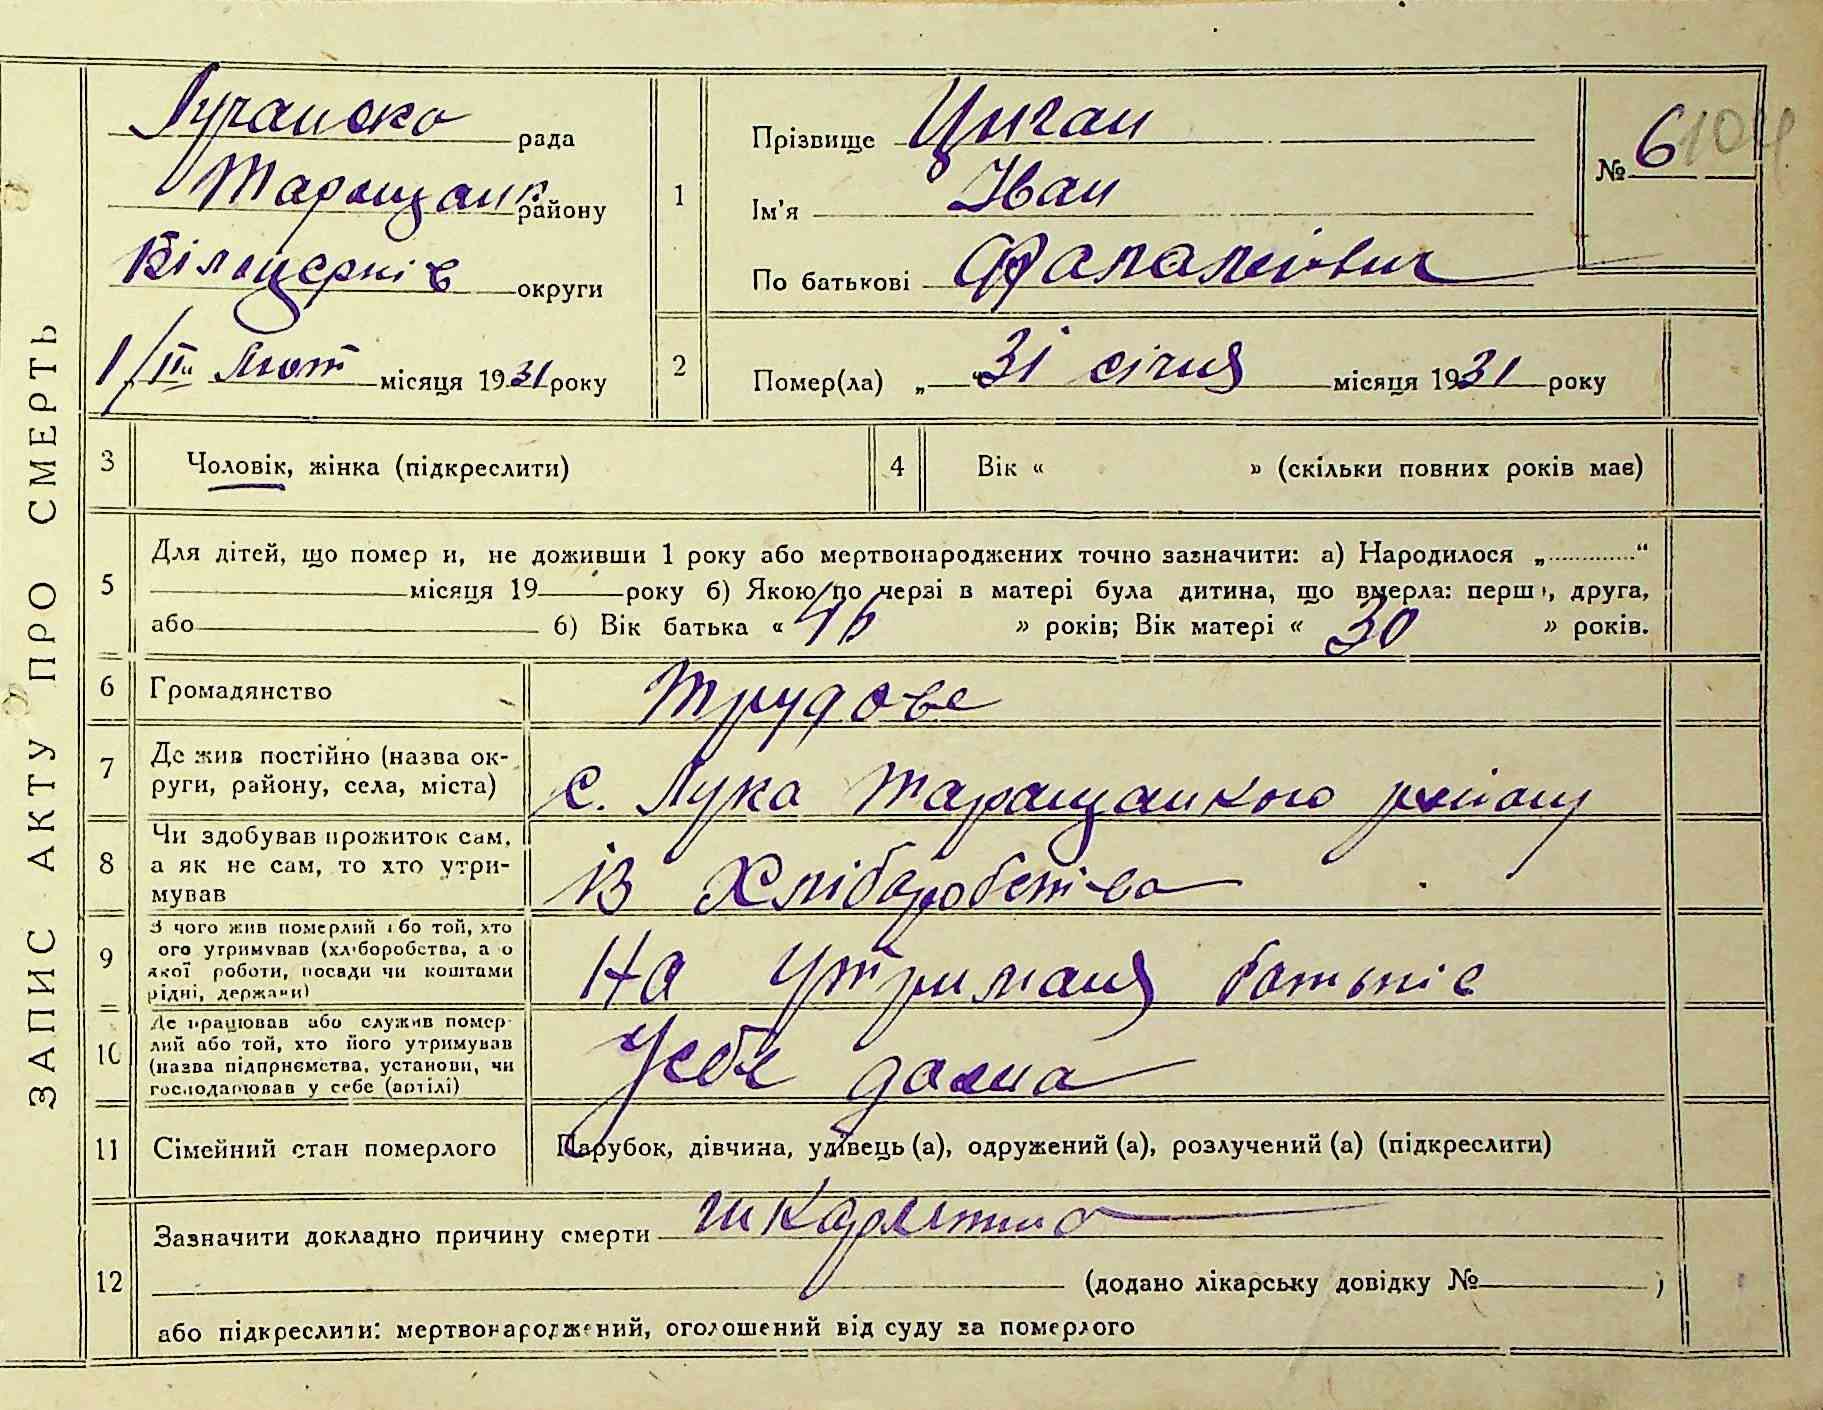 ЗАПИС АКТУ ПРО СМЕРТЬ
Лучанска рада
Таращанк району
Білоцерків округи
1/ІІ Лют місяця 1931 року
1
Прізвище Циган
Ім'я Іван
По батькові
№ 6 104
2
Помер(ла) „ “ 31 січня місяця 1931 року
3 Чоловік, жінка (підкреслити)
4 Вік « » (скільки повних років має)
5
Для дітей, що помер и, не доживши 1 року або мертвонароджених точно зазначити: а) Народилося „ “
місяця 19 року б) Якою по черзі в матері була дитина, що вмерла: перша, друга,
або б) Вік батька « » років; Вік матері « 30 » років.
6 Громадянство Трудове
7 Де жив постійно (назва ок-
руги, району, села, міста)
с. Лука Таращанкого району
8 Чи здобував прожиток сам,
а як не сам, то хто утри-
мував
із Хліборобства
9 З чого жив померлий або той, хто
ого утримував (хліборобства, а о
якої роботи, посади чи коштами
рідні, держави)
На утриманя батьків
10 Де працював або служив помер-
лий або той, хто його утримував
(назва підприємства, установи, чи
господарював у себе (артілі)
Усебе дома
11 Сімейний стан померлого Парубок, дівчина, удівець (а), одружений (а), розлучений (а) (підкреслити)
12
Зазначити докладно причину смерти шкарлатина
(додано лікарську довідку № )
або підкреслити: мертвонароджений, оголошений від суду за померлого